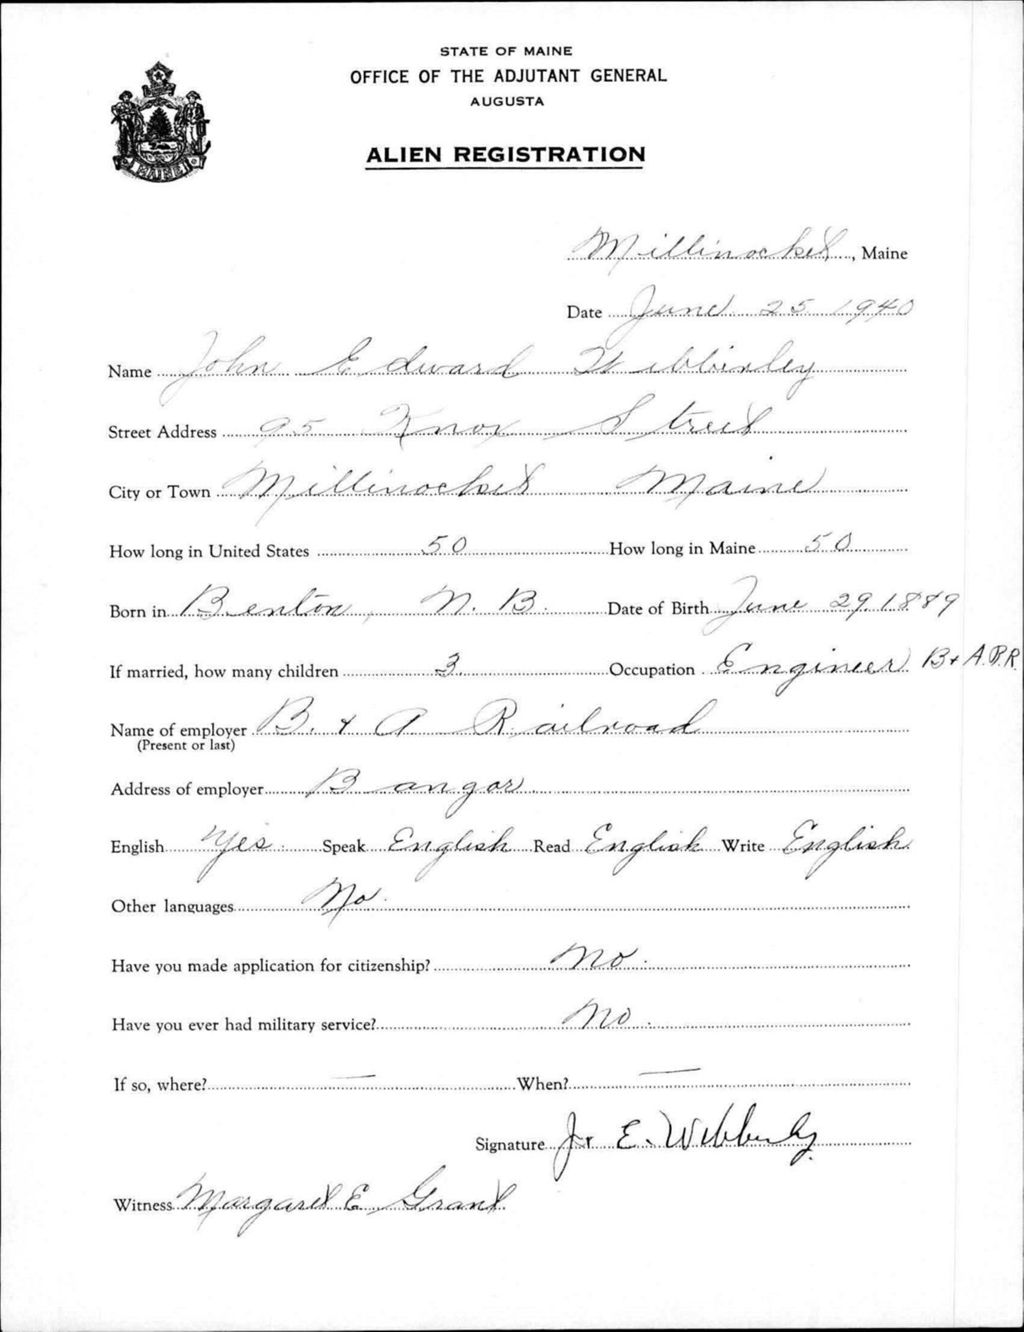 STATE OF MAINE
OFFICE OF THE ADJUTANT GENERAL
AUGUSTA
ALIEN REGISTRATION
MAINE
Millinocket, Maine
Date June 25 1940
Name John Edward Wibberley
Street Address 95 Knox Street
City or Town Millinocket Maine
How long in United States 50 How long in Maine 50
Born in Benton, N. B. Date of Birth June 29 1889
If married, how many children 3 Occupation Engineer B + A.R.R.
Name of employer B. + A Railroad
(Present or last)
Address of employer Bangor
English Yes. Speak English Read English Write English
Other languages No.
Have you made application for citizenship? No.
Have you ever had military service? No.
If so, where? — When? —
Signature E. Wibberley
Witness Margaret E Grant